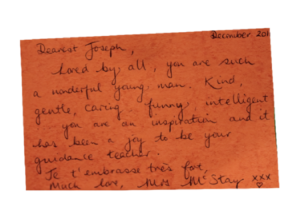 December 201
Dearest Joseph,
Loved by all, you are such
a wonderful young man. Kind,
gentle, caring, funny, intelligent
you are an inspiration and it
has been a joy to be your
guidance teacher.
Je t'embrasse très fort,
Much love, Mrs McStay xxx